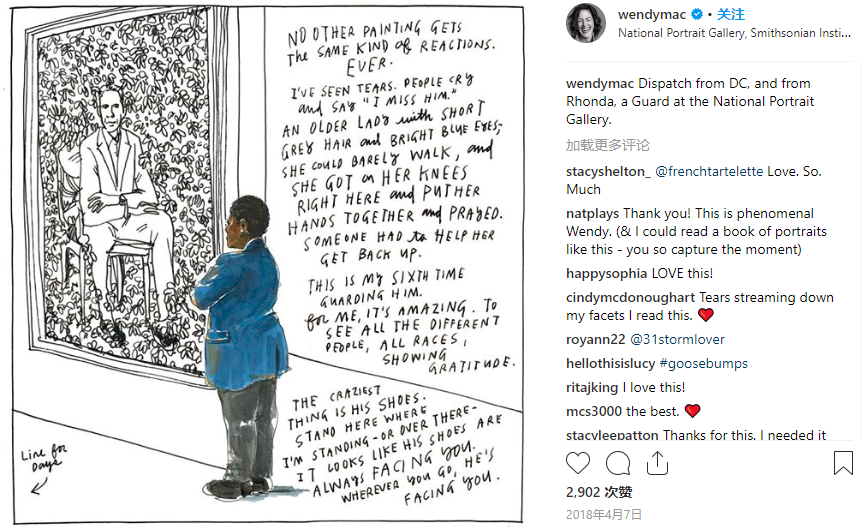 NO OTHER PAINTING GETS
THE SAME KIND OF REACTIONS.
EVER.
I'VE SEEN TEARS. PEOPLE CRY
and SAY "I MISS HIM."
AN OLDER LADY with SHORT
GREY HAIR and BRIGHT BLUE EYES,
SHE COULD BARELY WALK, and
SHE GOT on HER KNEES
RIGHT HERE and PUT HER
HANDS TOGETHER and PRAYED.
SOMEONE HAD to HELP HER
GET BACK UP.
THIS IS MY SIXTH TIME
GUARDING HIM.
for ME, IT'S AMAZING. TO
SEE ALL THE DIFFERENT
PEOPLE, ALL RACES,
SHOWING
GRATITUDE.
THE CRAZIEST
THING IS HIS SHOES.
STAND HERE WHERE
I'M STANDING - OR OVER THERE -
IT LOOKS LIKE HIS SHOES ARE
ALWAYS FACING YOU.
WHEREVER YOU GO, HE'S
FACING YOU.
Line for
Days
wendymac • 关注
National Portrait Gallery, Smithsonian Insti...
wendymac Dispatch from DC, and from
Rhonda, a Guard at the National Portrait
Gallery.
加载更多评论
stacyshelton_ @frenchtartelette Love. So.
Much
natplays Thank you! This is phenomenal
Wendy. (& I could read a book of portraits
like this - you so capture the moment)
happysophia LOVE this!
cindymcdonoughart Tears streaming down
my facets I read this. ❤
royann22 @31stormlover
hellothisislucy #goosebumps
ritajking I love this!
mcs3000 the best. ❤
stacyleepatton Thanks for this. I needed it
2,902 次赞
2018年4月7日